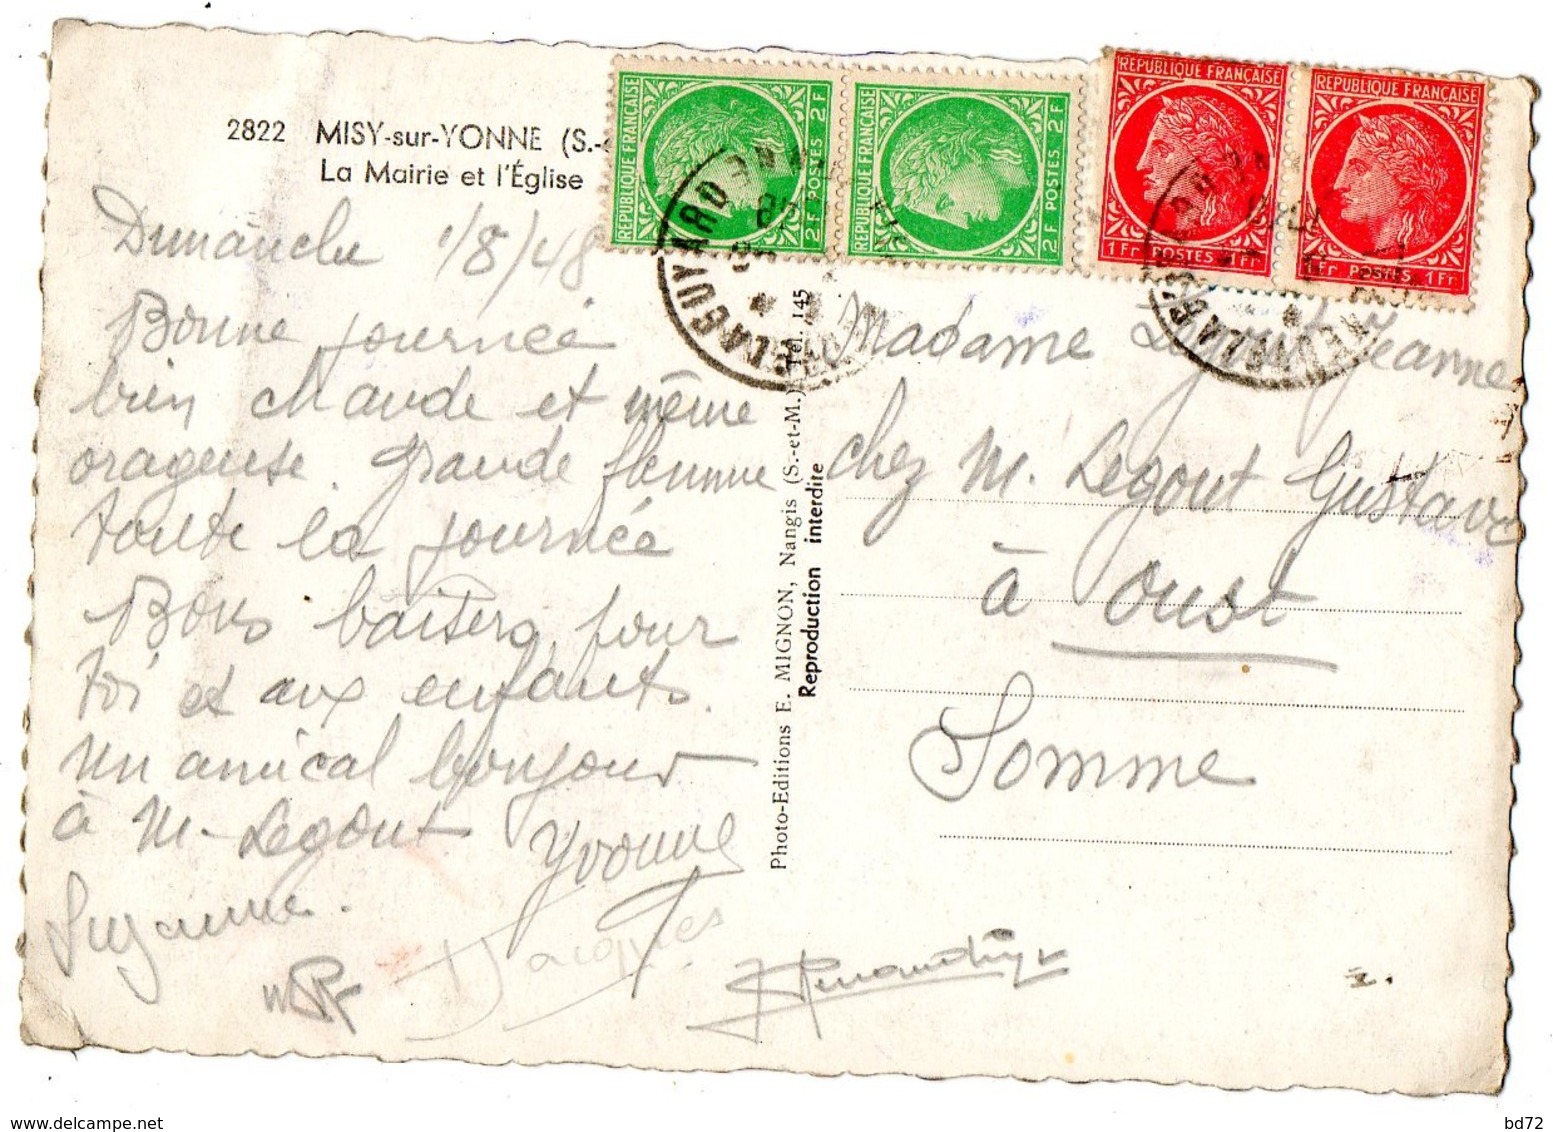 2822 MISY-sur-YONNE (S.-
La Mairie et l'Église
RÉPUBLIQUE FRANÇAISE
2F POSTES 2F
RÉPUBLIQUE FRANÇAISE
2F POSTES 2F
RÉPUBLIQUE FRANÇAISE
1Fr POSTES 1Fr
RÉPUBLIQUE FRANÇAISE
1Fr POSTES 1Fr
Dimanche 1/8/48
Bonne journée
bien chaude et même
orageuse. Grande flemme
toute la journée
Bons baisers pour
toi et aux enfants.
Un amical bonjour
à M. Legout Yvonne
Suzanne.
Jacques
Photo-Editions E. MIGNON, Nangis (S.-et-M.) Tél. 145
Reproduction interdite
Madame Legout Jeanne
chez M. Legout Gustave
à Oust
Somme
bd72